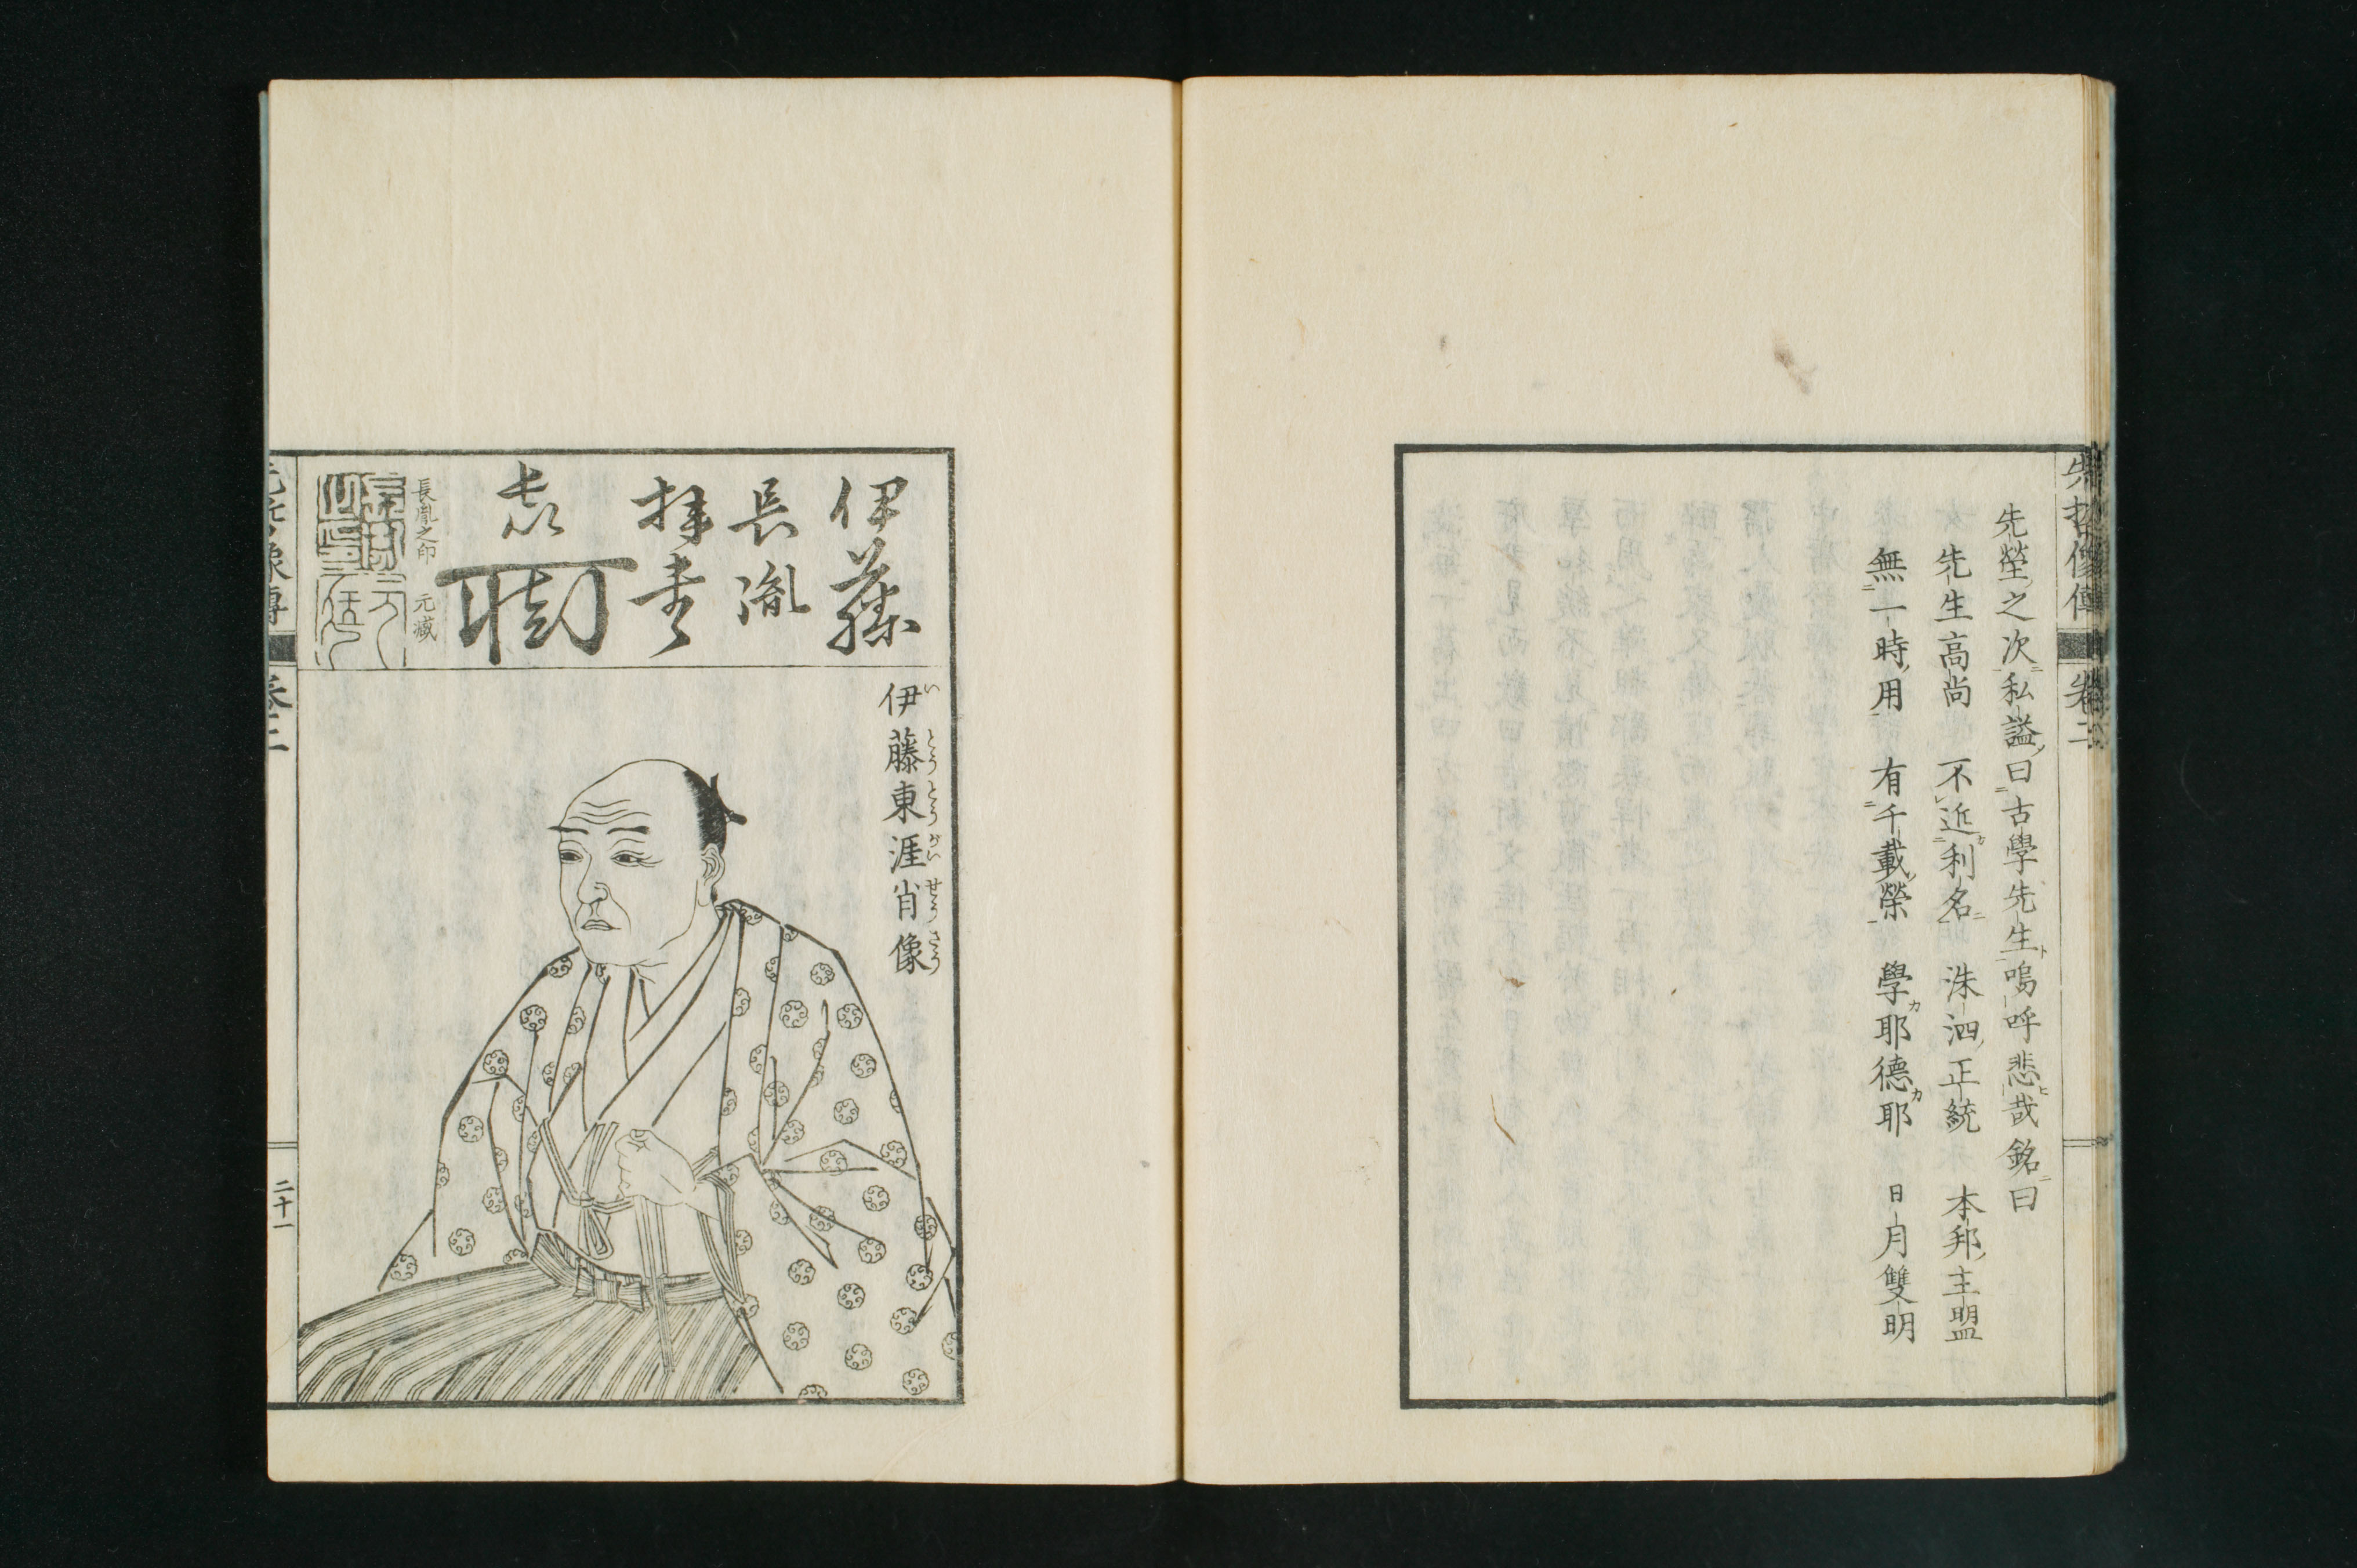 先哲像傳 卷二
先塋之次私謚曰古學先生嗚呼悲哉銘曰
先生高尚 不近利名 洙泗正統 本邦主盟
無一時用 有千載榮 學耶德耶 日月雙明
伊藤
長胤
拜
長胤之印 元藏
伊藤東涯肖像
いとうとうがいせうざう
先哲像傳 卷二 二十一